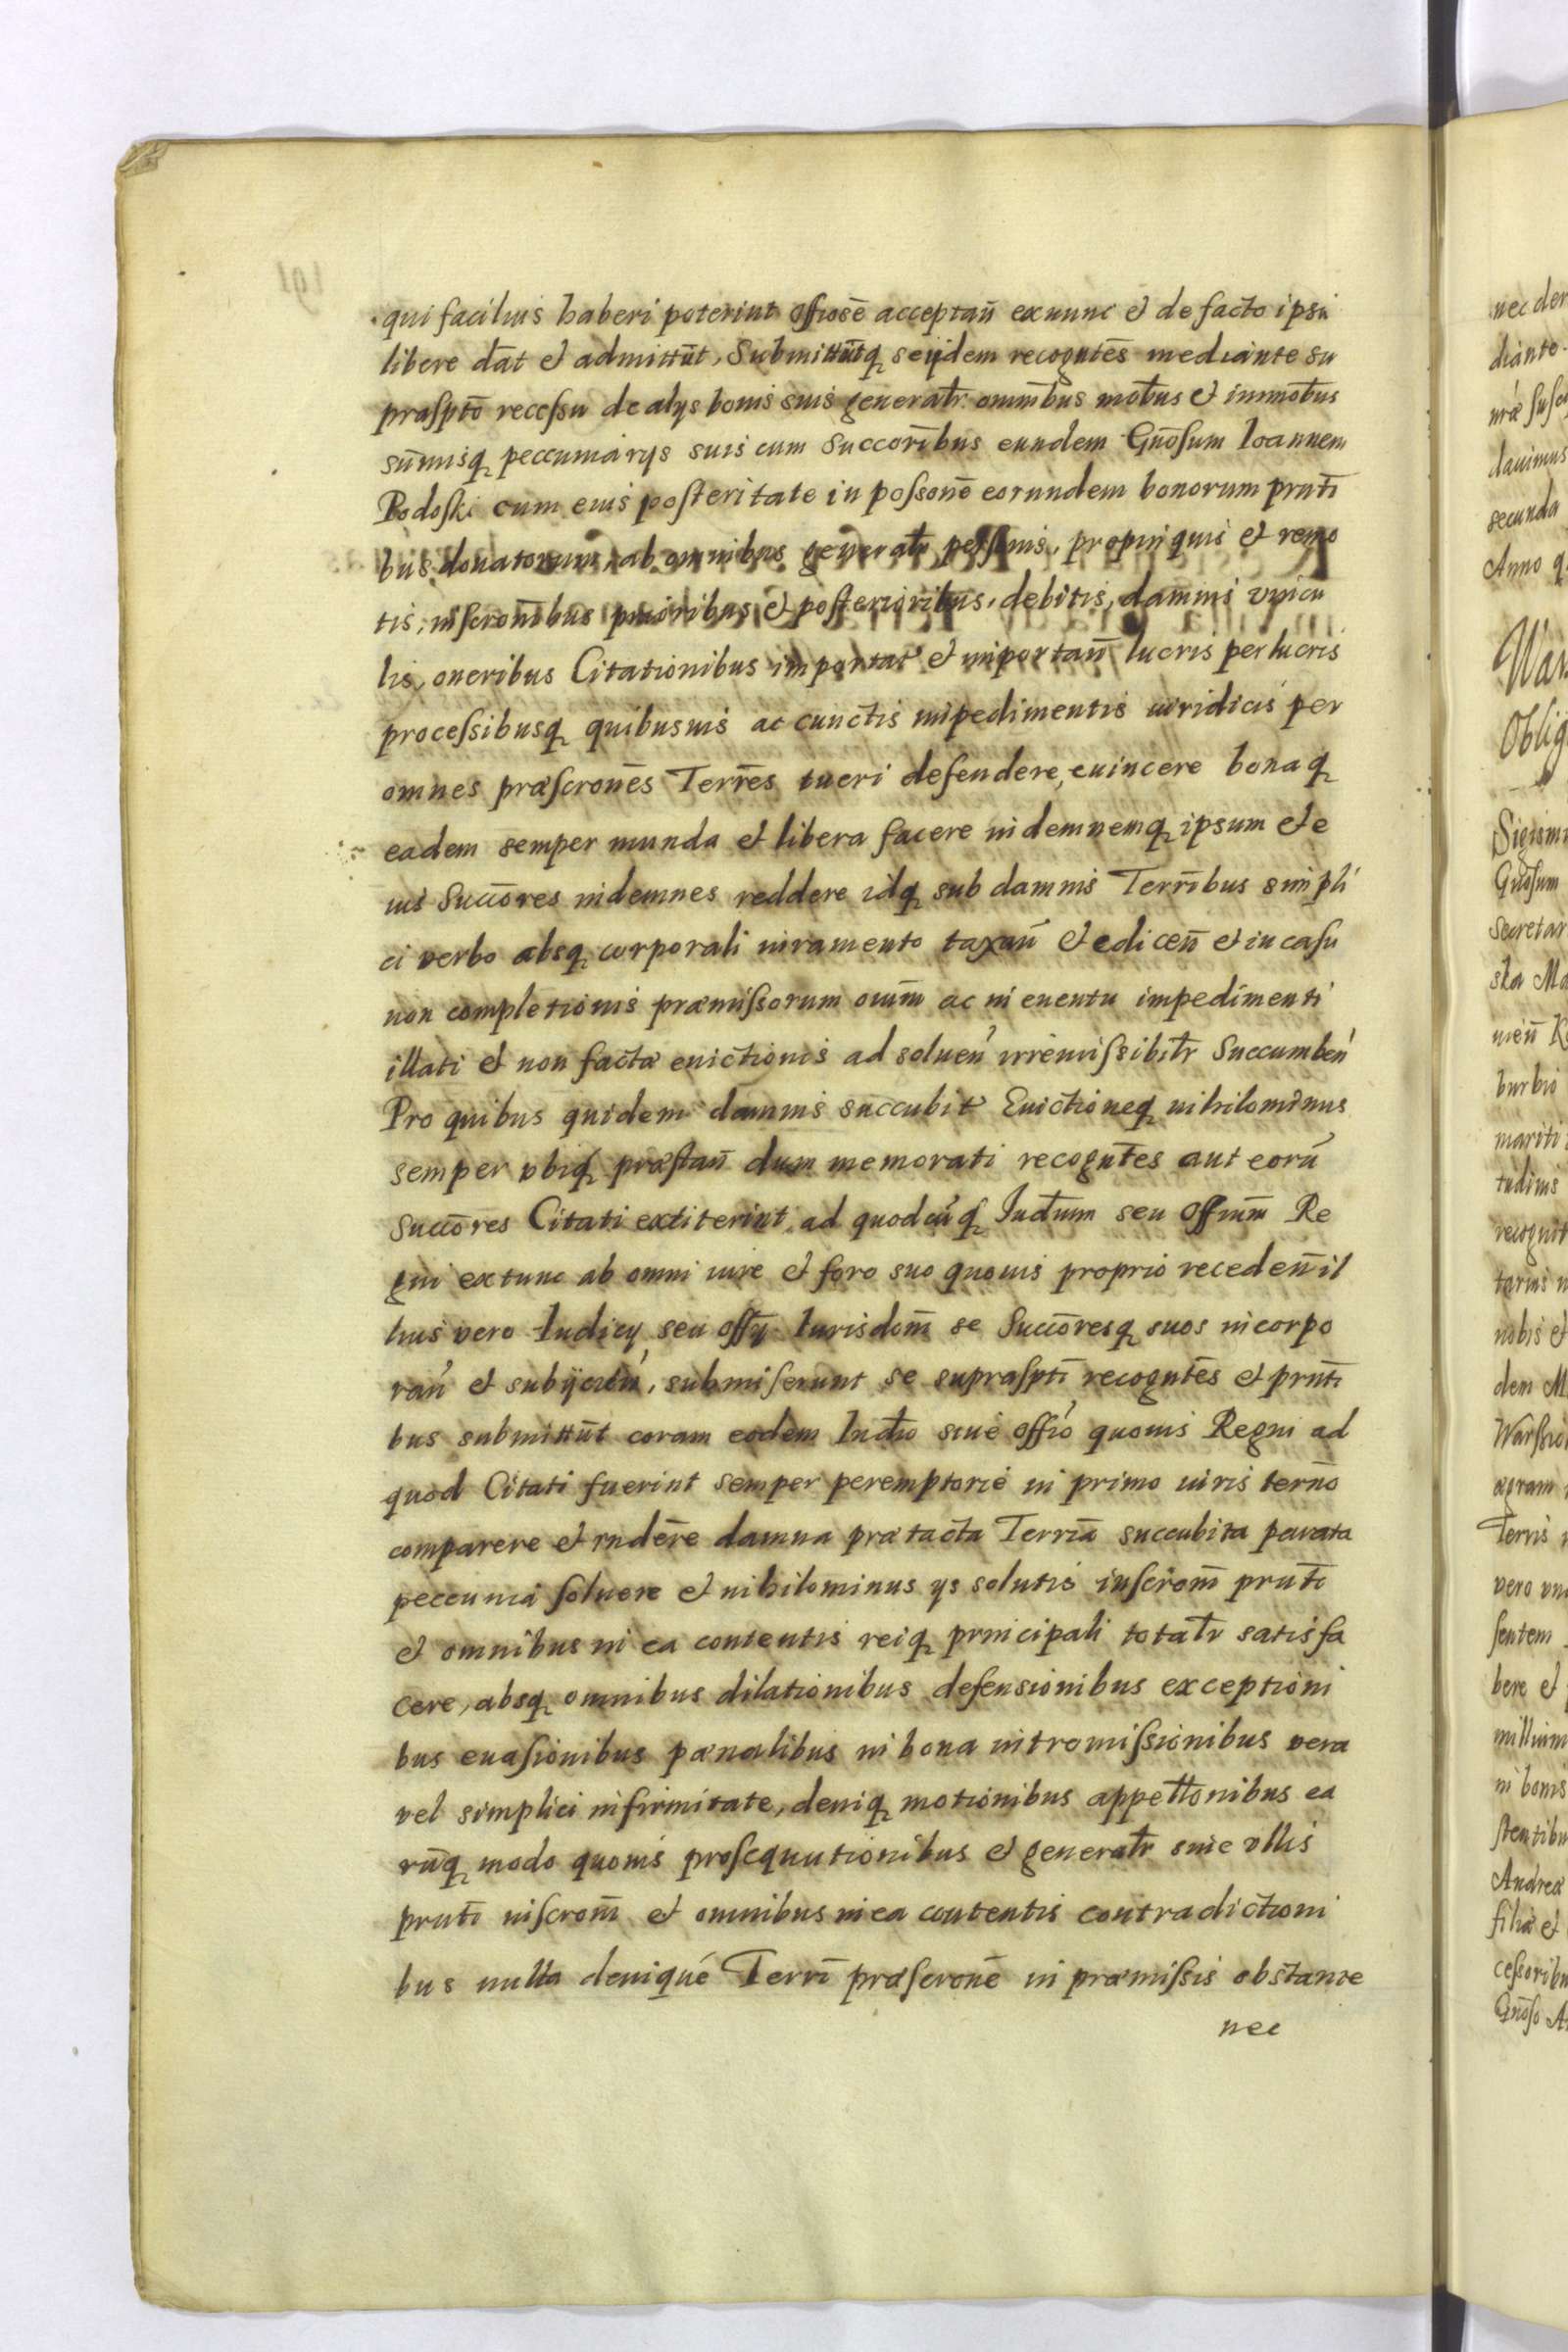 qui facilius haberi poterint offiosē acceptan̄ ex nunc et de facto ipsi
libere dāt et admittūt, Submittūtq₃ seijdem recogntēs mediante su
praſptō receſsu de alys bonis suis generalr omnībus mobus et immobus
sum̄isq₃ peccuniarys suis cum Succorībus eundem Gnōsum Ioannem
Podoſki cum eius poſteritate in poſsonē eorundem bonorum pntī
bus donatorum, ab omnibus generalr perſonis, propinquis et remo
tis, inſcronībus prioribus et poſterioribus, debitis, damnis vincu
lis, oneribus Citationibus importat et importan̄ lucris perlucris
proceſsibusq₃ quibusuis ac cunctis impedimentis iuridicis per
omnes præſcronēs Terrēs tueri defendere, euincere bonaq₃
eadem semper munda et libera facere indemnemq₃ ipsum et e
ius Succōres indemnes reddere idq₃ sub damnis Terrībus simpli
ci verbo absq₃ corporali iuramento taxan̄ et edicen̄ et in caſu
non completionis præmiſsorum oium̄ ac in euentu impedimenti
illati et non factæ euictionis ad soluen̄ irremiſsibilr Succumben̄
Pro quibus quidem damnis succubit Euictioneq₃ nihilominus
semper vbiq₃ præſtan̄ dum memorati recogntēs aut eorū
Succōres Citati extiterint, ad quodcūq₃ Iudium seu Offium̄ Re
gni extunc ab omni iure et foro suo quouis proprio receden̄ il
lius vero Iudicy seu offy Iurisdom̄ se Succōresq₃ suos incorpo
ran̄ et subijcien̄, submiſerunt se supraſptī recogntēs et pntī
bus submittūt coram eodem Iudio siue offio quouis Regni ad
quod Citati fuerint semper peremptorie in primo iuris ternō
comparere et rndēre damna prætacta Terria succubita parata
peccunia ſoluere et nihilominus ys solutis inſcrom̄ pntī
et omnibus in ea contentis reiq₃ principali totalr satisfa
cere, absq₃ omnibus dilationibus defensionibus exceptioni
bus euaſionibus pænalibus in bona intromiſsionibus vera
vel simplici infirmitate, deniq₃ motionibus appellonibus ea
rūq₃ modo quouis proſequutionibus et generalr sine vllis
pntī inſcrom̄ et omnibus in ea contentis contradictioni
bus nulla denique Terrī præſcronē in præmiſsis obstante
nec